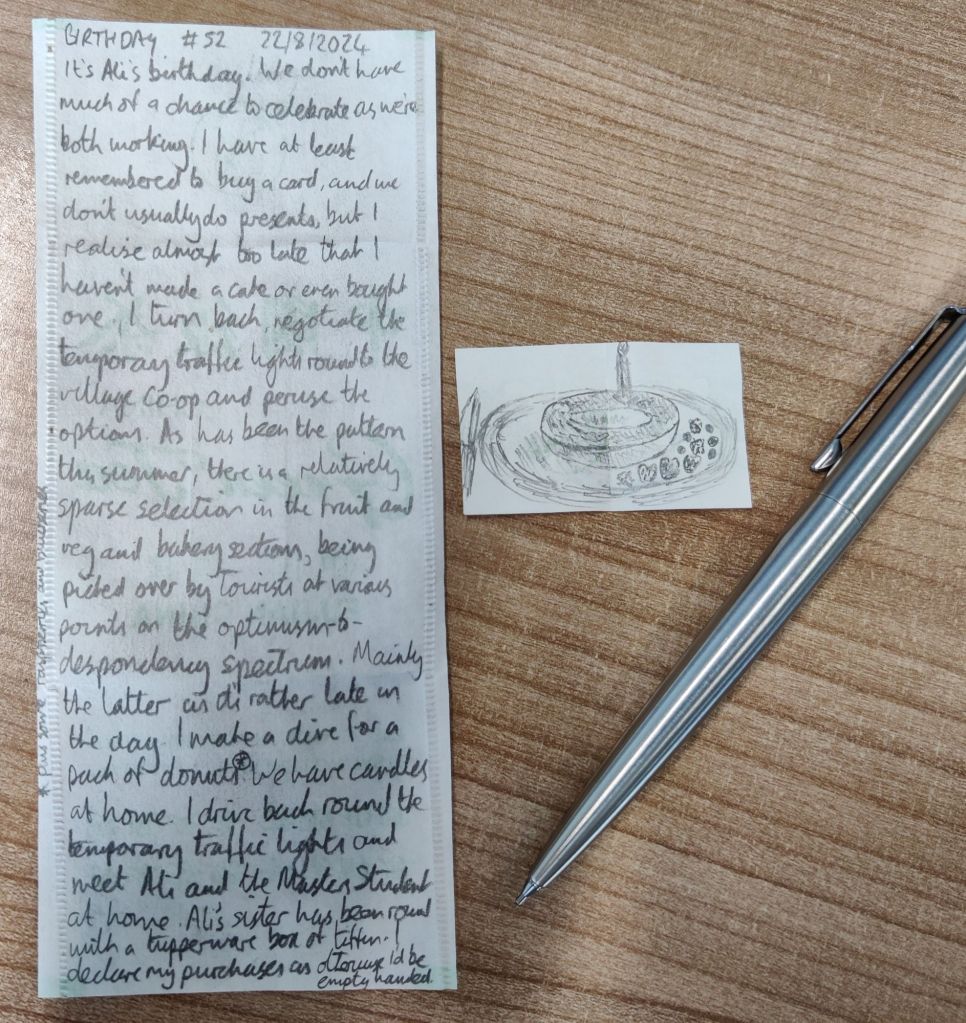 BIRTHDAY #52 22/8/2024
It's Ali's birthday. We don't have
much of a chance to celebrate as we're
both working. I have at least
remembered to buy a card, and we
don't usually do presents, but I
realise almost too late that I
haven't made a cake or even bought
one. I turn back, negotiate the
temporary traffic lights round to the
village Co-op and peruse the
options. As has been the pattern
this summer, there is a relatively
sparse selection in the fruit and
veg and bakery sections, being
picked over by tourists at various
points on the optimism-to-
despondency spectrum. Mainly
the latter as it's rather late in
the day. I make a dive for a
pack of donuts* We have candles
at home. I drive back round the
temporary traffic lights and
meet Ali and the Masters Student
at home. Ali's sister has been round
with a tupperware box of tiffin. I
declare my purchases as otherwise I'd be
empty handed.
* plus some raspberries and